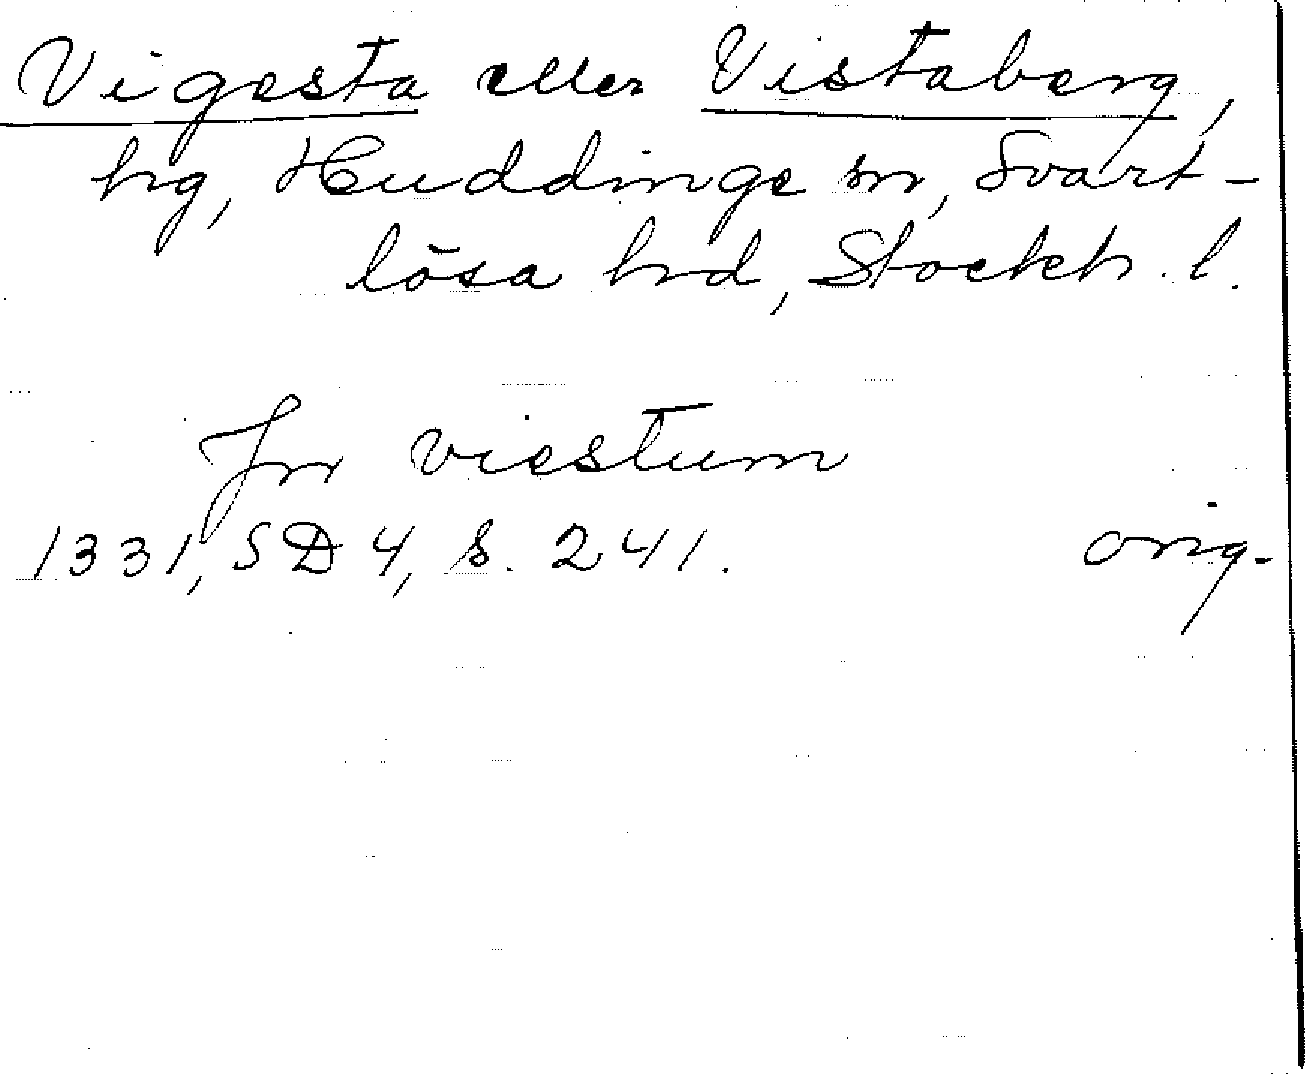 Vigesta eller Vistaberg,
hg, Huddinge sn, Svart-
lösa hd, Stockh. l.
Jnr viestum
1331, SD 4, s. 241. orig.